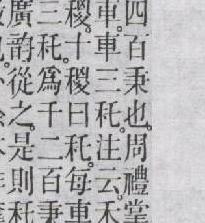 四百秉也周禮掌
車車三秅注云禾
稷十稷曰秅每車
三秅爲千二百秉
廣韵從之是則秅